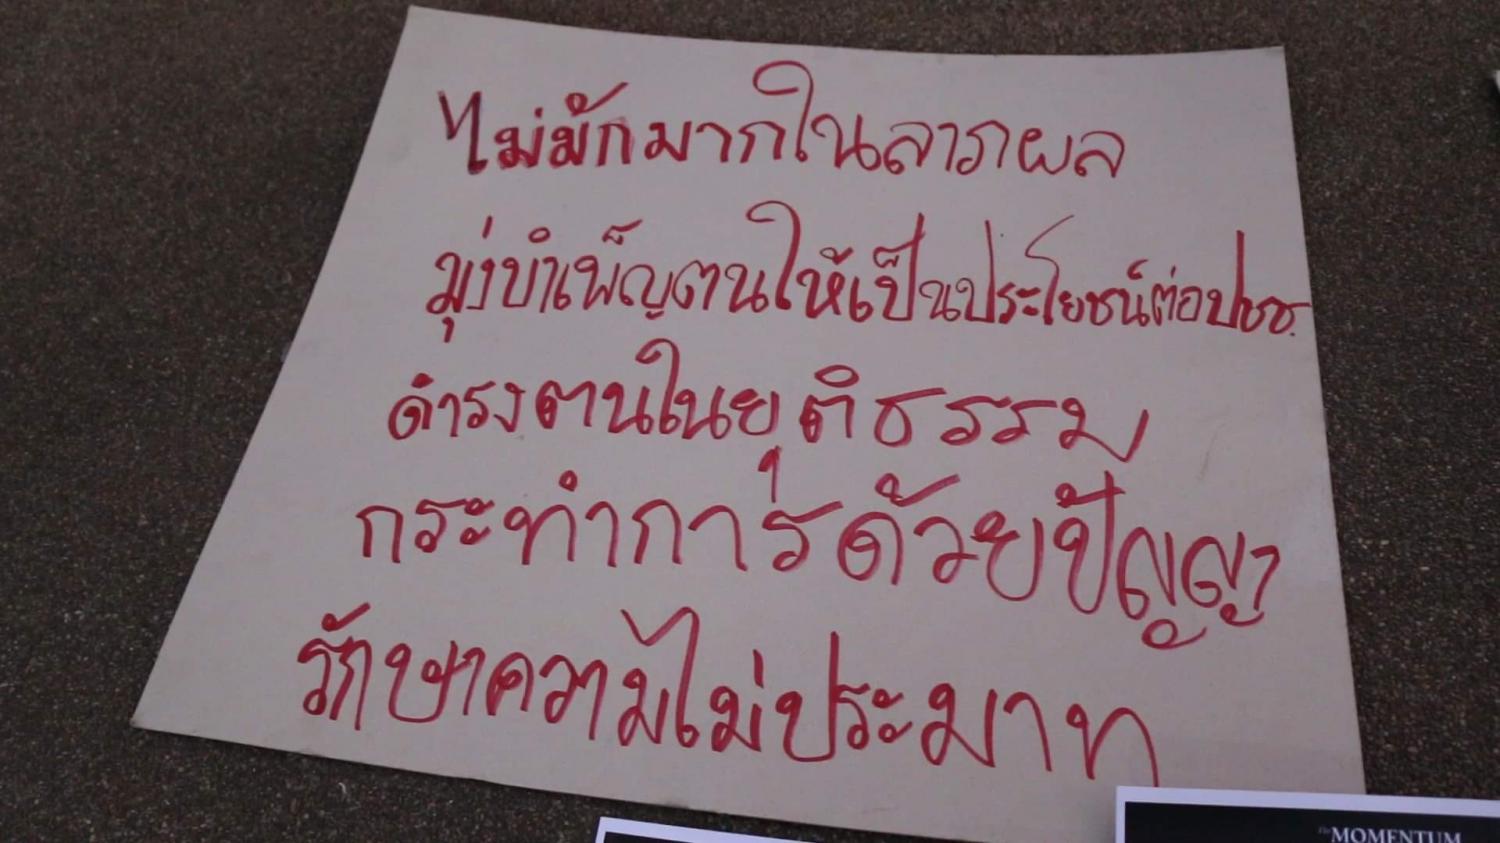 ไม่มักมากในลาภผล
มุ่งบำเพ็ญตนให้เป็นประโยชน์ต่อปชช.
ดำรงตนในยุติธรรม
กระทำการด้วยปัญญา
รักษาความไม่ประมาท
The MOMENTUM